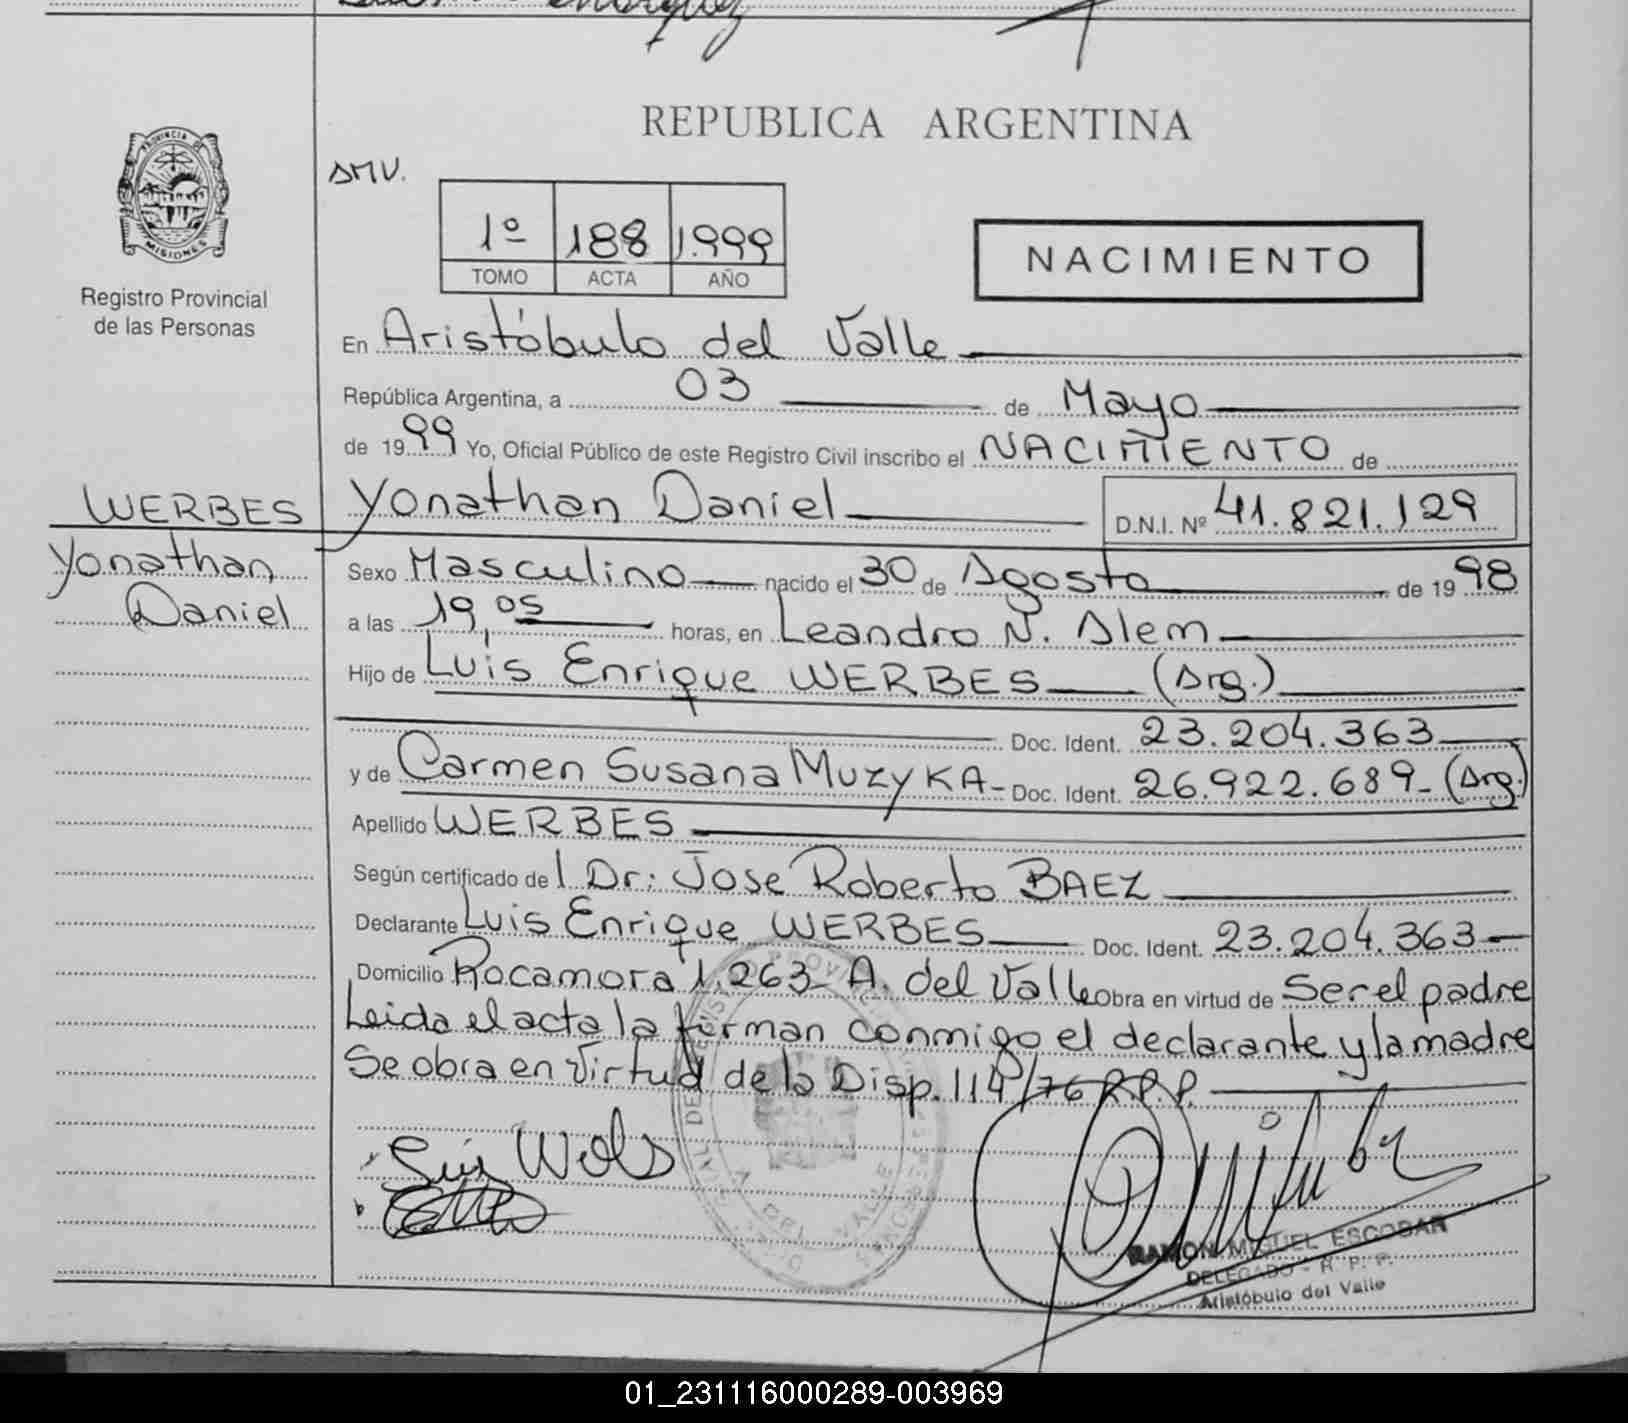 REPUBLICA ARGENTINA
PROVINCIA DE
MISIONES
Registro Provincial
de las Personas
AMV.
1º 188 1.999
TOMO ACTA AÑO
NACIMIENTO
En Aristóbulo del Valle
República Argentina, a 03 de Mayo
de 1999 Yo, Oficial Público de este Registro Civil inscribo el NACIMIENTO de
WERBES
Yonathan
Daniel
Yonathan Daniel D.N.I. Nº 41.821.129
Sexo Masculino nacido el 30 de Agosto de 1998
a las 19,05 horas, en Leandro N. Alem
Hijo de Luis Enrique WERBES (Arg.)
Doc. Ident. 23.204.363
y de Carmen Susana MUZYKA- Doc. Ident. 26.922.689- (Arg.)
Apellido WERBES
Según certificado del Dr: Jose Roberto BAEZ
Declarante Luis Enrique WERBES Doc. Ident. 23.204.363
Domicilio Rocamora 1.263- A. del Valle Obra en virtud de Ser el padre
Leida el acta la firman conmigo el declarante y la madre
Se obra en Virtud de la Disp. 114/76 R.P.P.
RAMON MIGUEL ESCOBAR
DELEGADO - R. P. P.
Aristóbulo del Valle
01_231116000289-003969